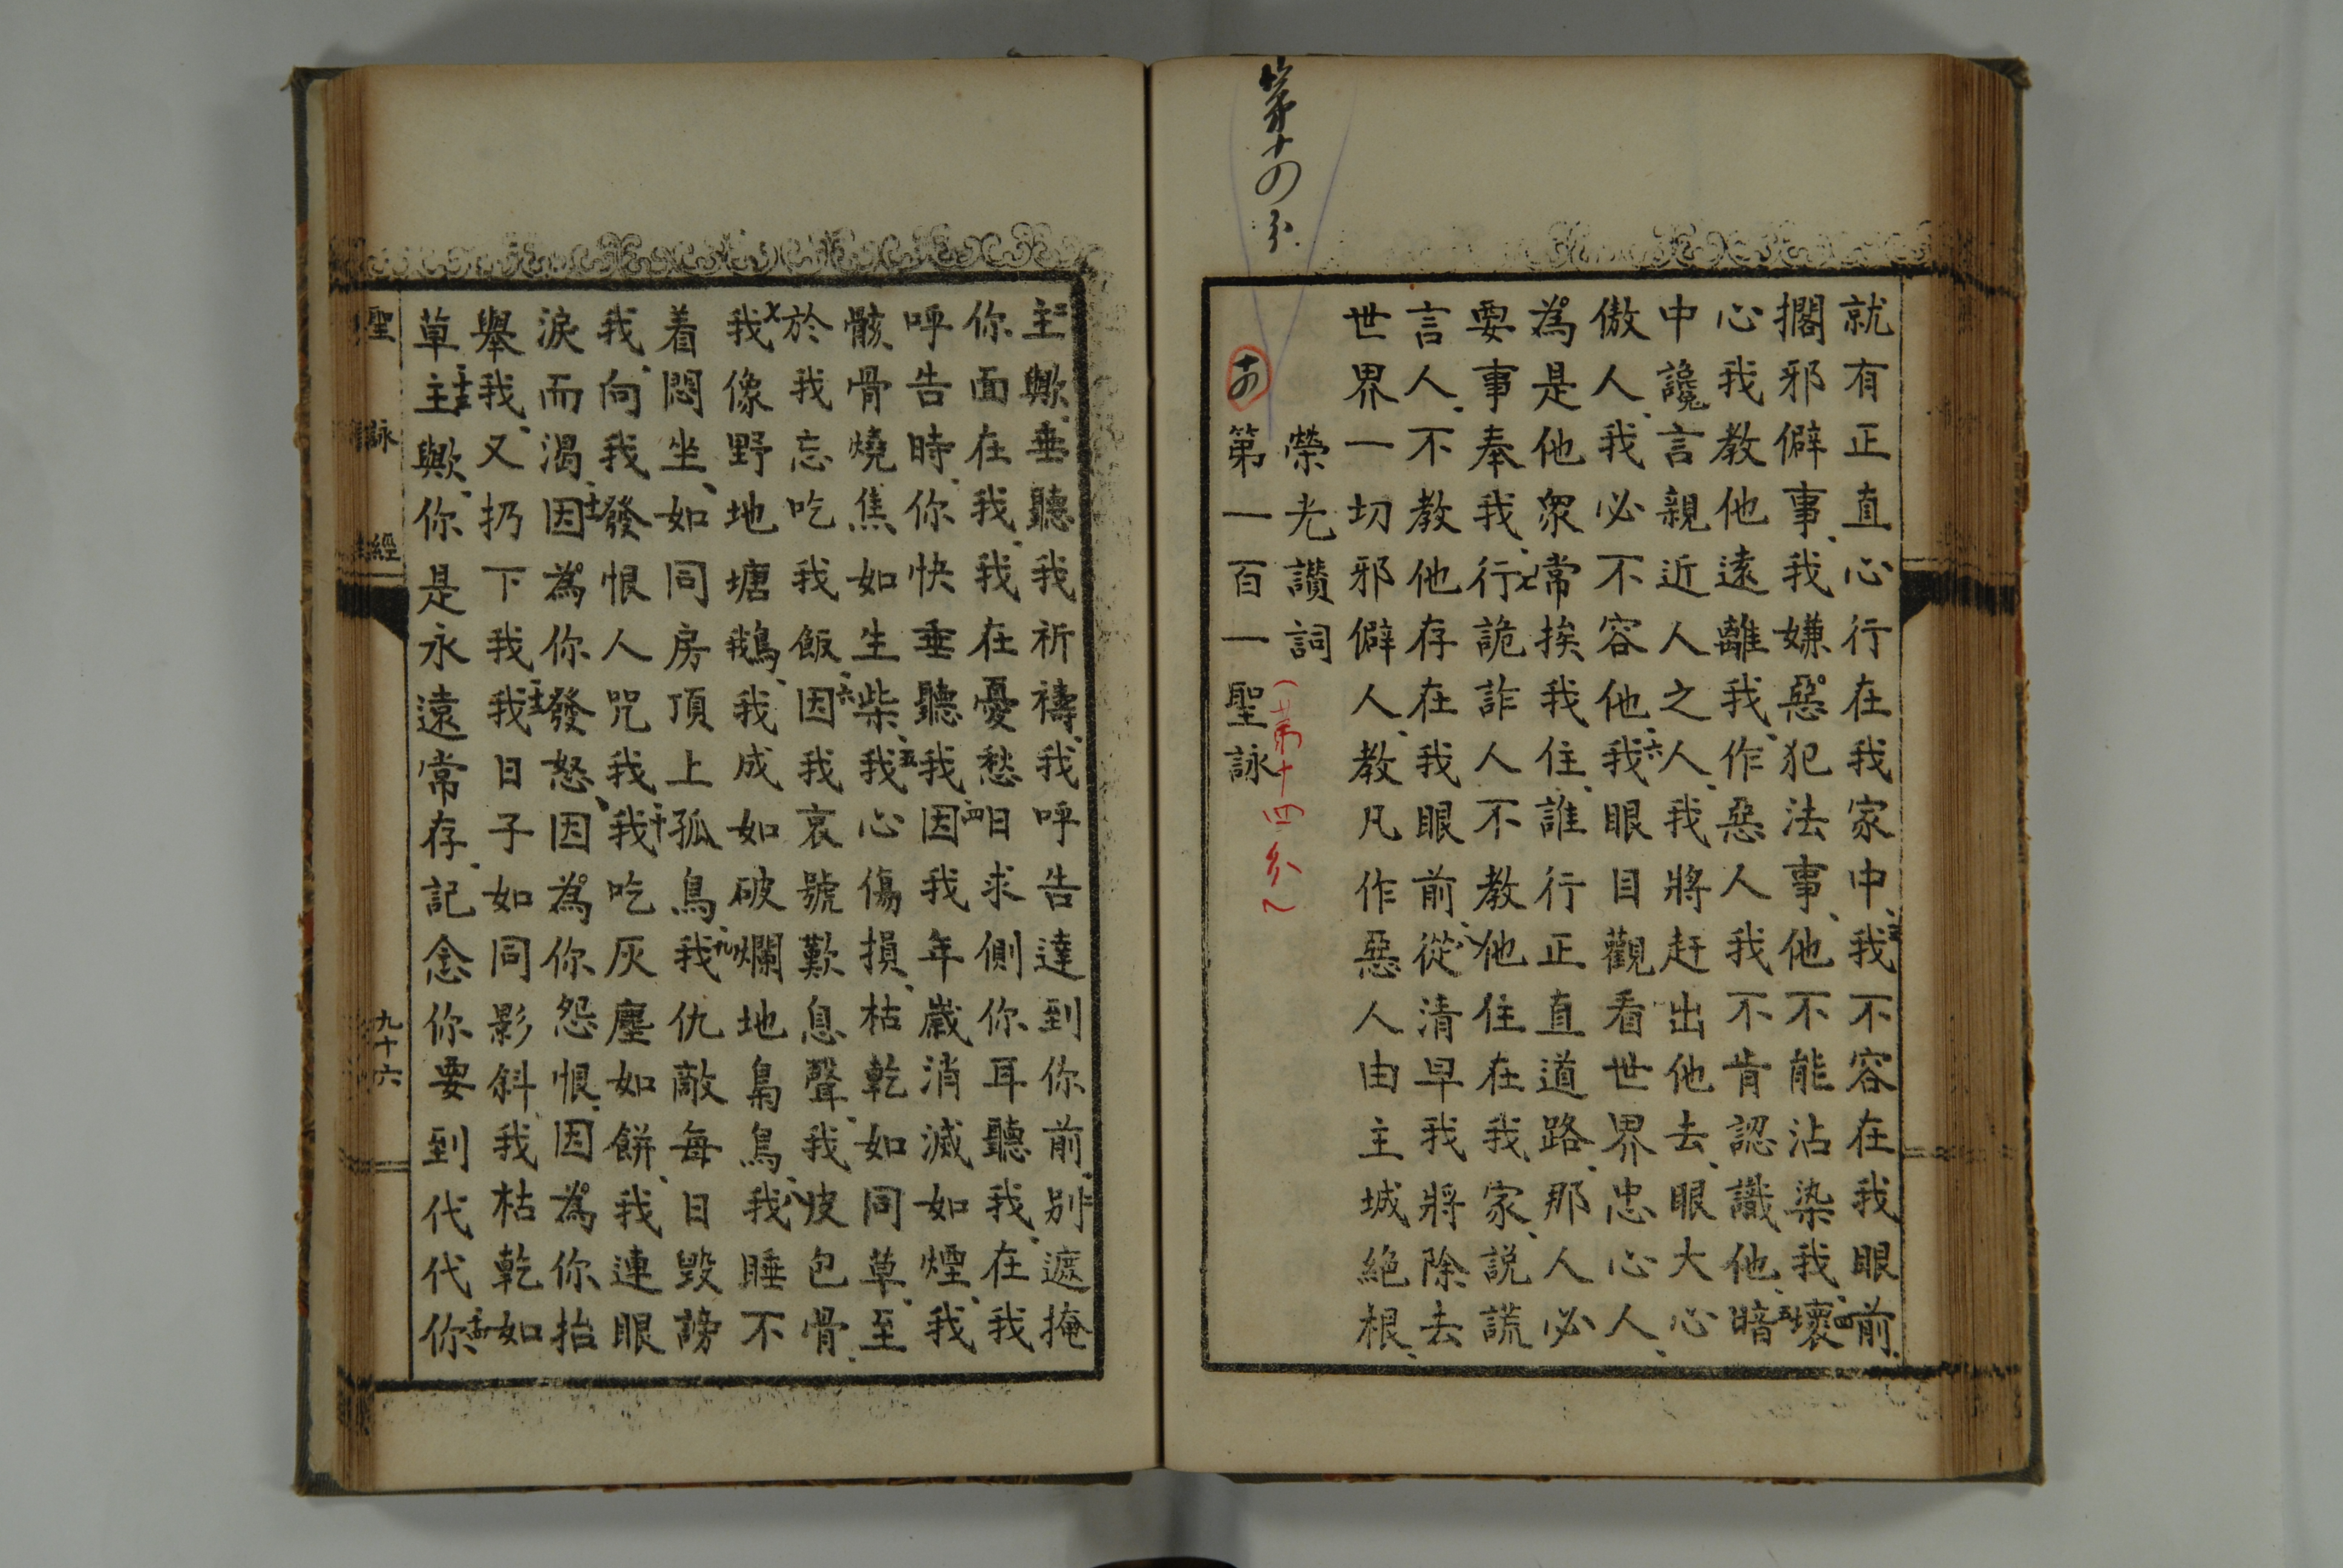 第十四分
就有正直心行在我家中、三我不容在我眼前、
擱邪僻事、我嫌惡犯法事、他不能沾染我、四壞
心我教他遠離我、作惡人我不肯認識他、五暗
中讒言親近人之人、我將赶出他去、眼大心
傲人、我必不容他、六我眼目觀看世界忠心人、
為是他衆常挨我住、誰行正直道路、那人必
要事奉我、七行詭詐人不教他住在我家、説謊
言人、不教他存在我眼前、八從清早我將除去
世界一切邪僻人、教凡作惡人由主城絶根、
榮光讚詞
(第十四分)
十四
第一百一聖詠
主歟、垂聽我祈禱、我呼告達到你前、二別遮掩
你面在我、我在憂愁日求側你耳聽我、在我
呼告時、你快垂聽我、三因我年歲消滅如煙、我
骸骨燒焦如生柴、五我心傷損、枯乾如同草、至
於我忘吃我飯、六因我哀號歎息聲、我皮包骨、
七我像野地塘鵝、我成如破爛地鳥鳥、八我睡不
着悶坐、如同房頂上孤鳥、九我仇敵每日毀謗
我、向我發恨人咒我、十我吃灰塵如餅、我連眼
淚而渴、十一因為你發怒、因為你怨恨、因為你抬
舉我、又扔下我、十二我日子如同影斜、我枯乾如
草、十三主歟、你是永遠常存、記念你要到代代、十四你
聖詠經
九十六